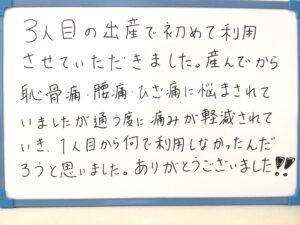 3人目の出産で初めて利用
させていただきました。産んでから
恥骨痛・腰痛・ひざ痛に悩まされて
いましたが通う度に痛みが軽減されて
いき、1人目から何で利用しなかったんだ
ろうと思いました。ありがとうございました!!